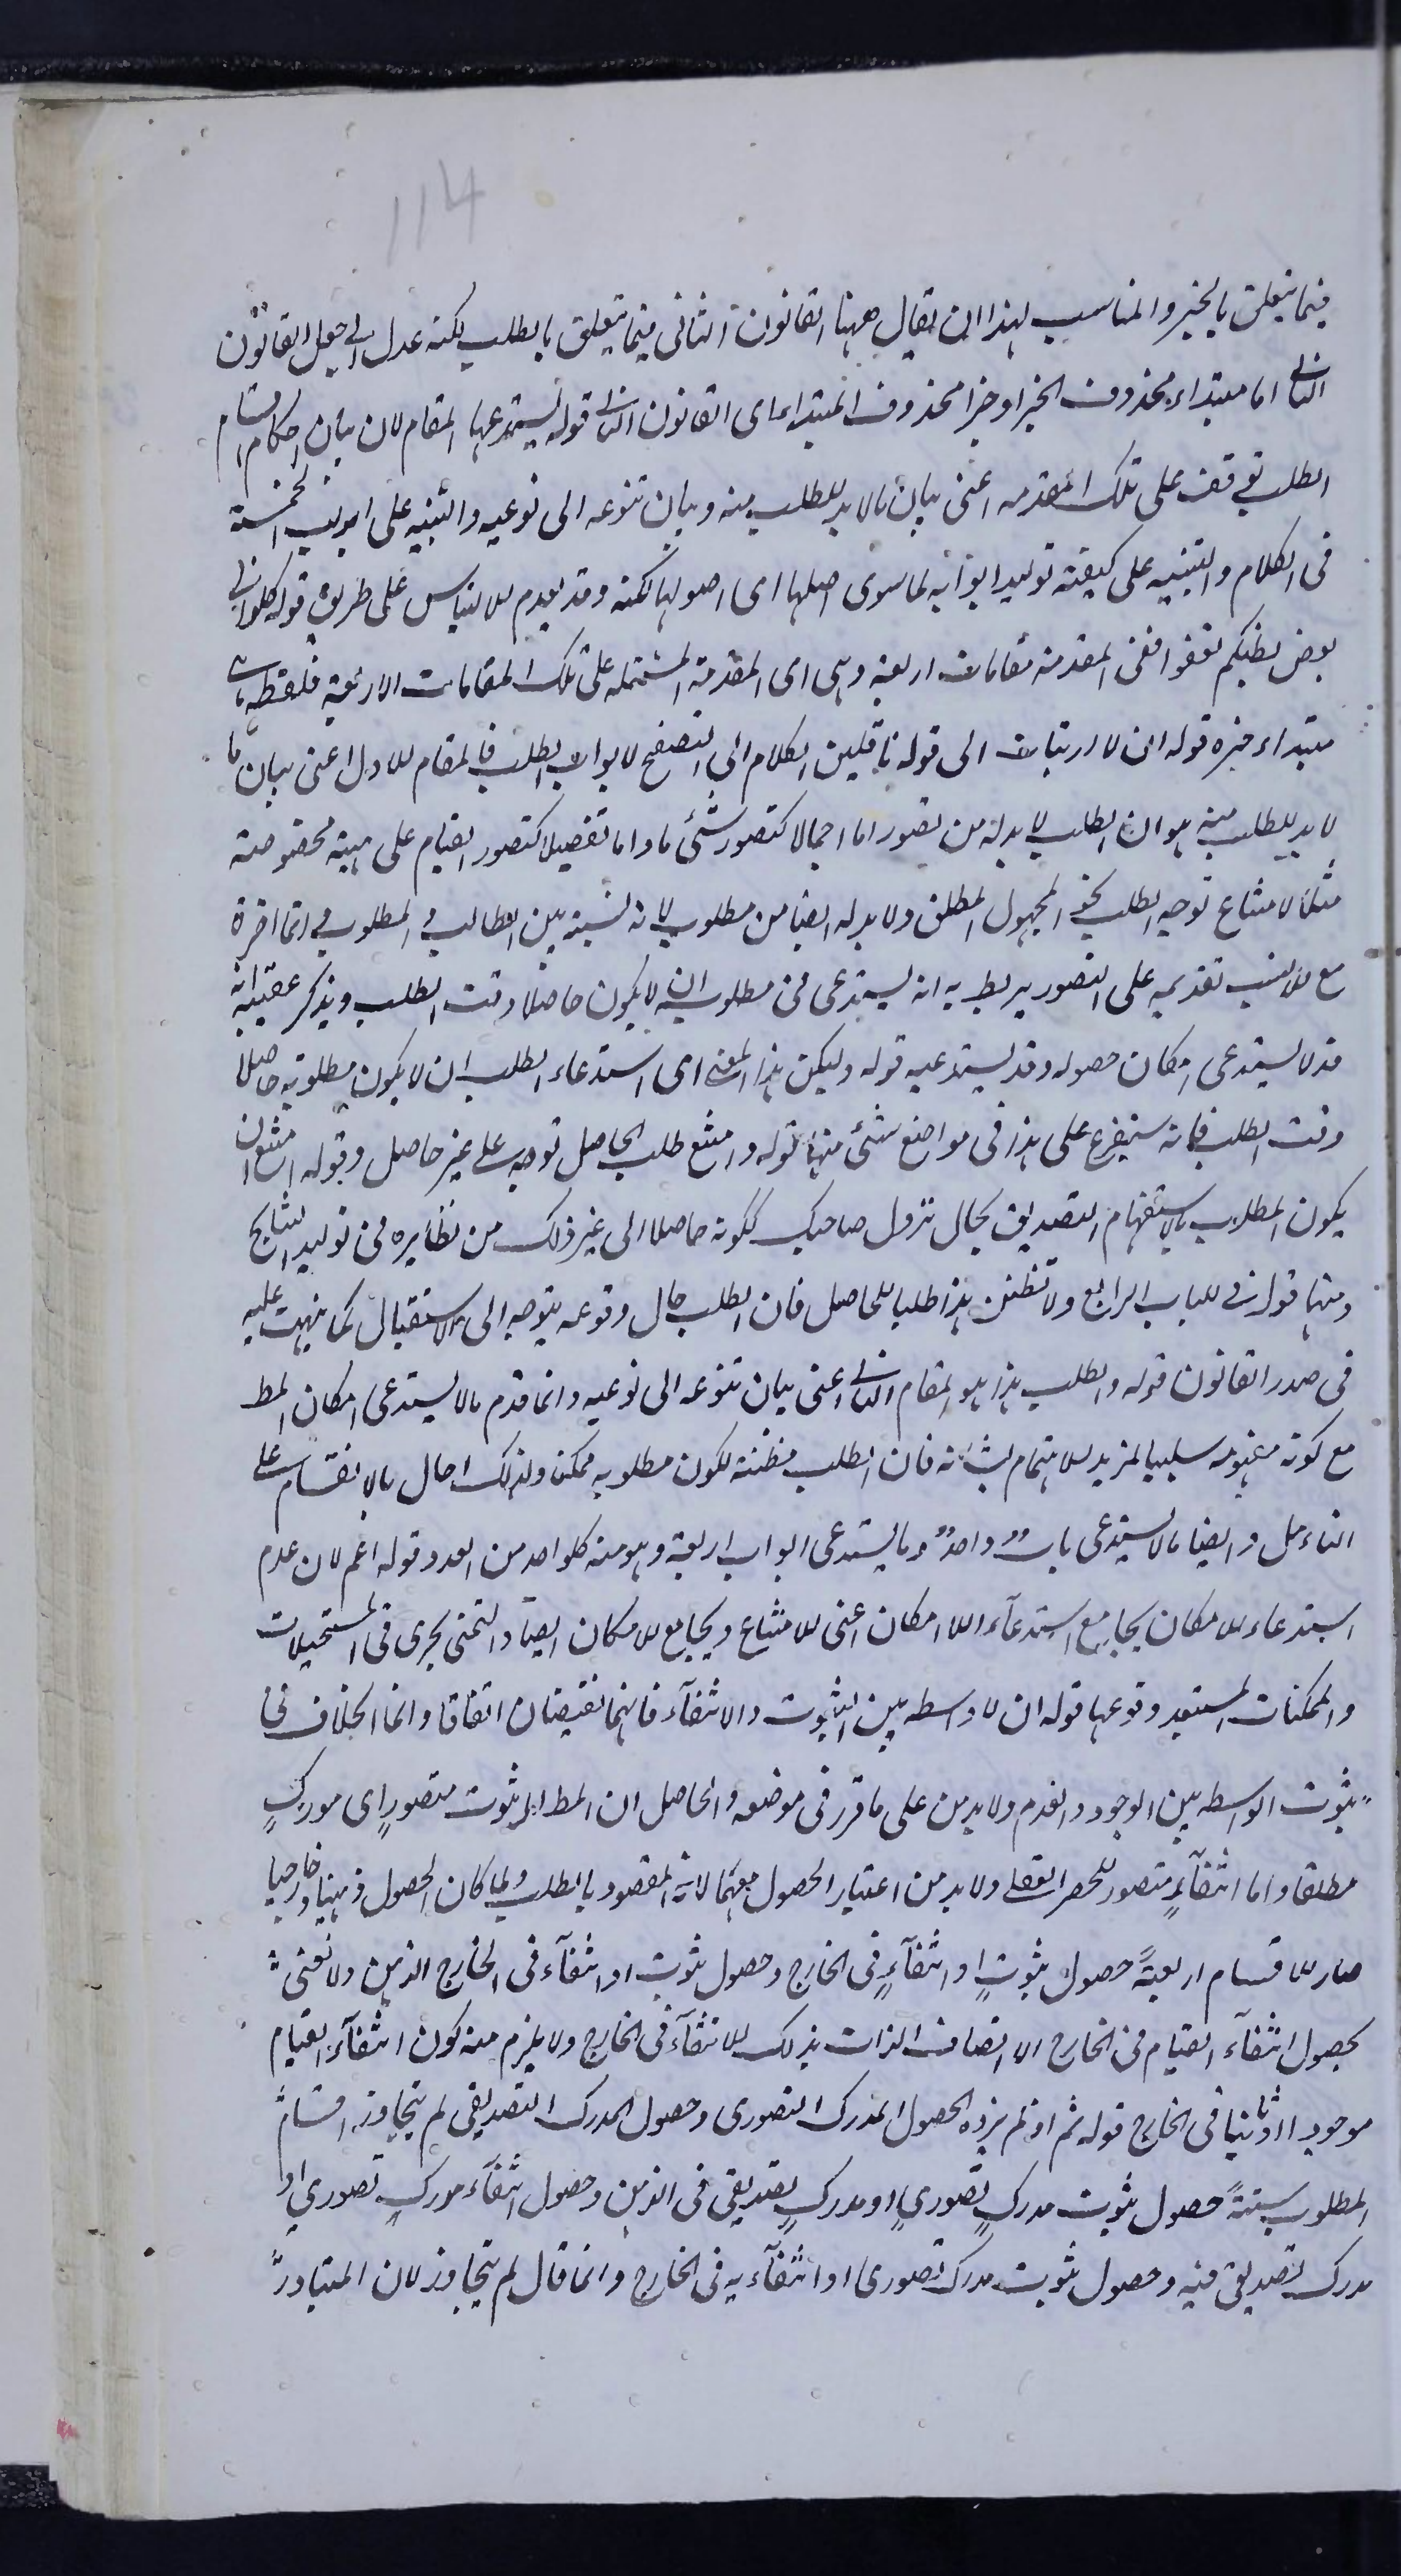 114
فيما يتعلق بالخبر والمناسب لهذا ان يقال ههنا القانون الثانى فيما يتعلق بالطلب لكنه عدل الى جعل القانون
الثانى اما مبتداء محذوف الخبر او خبرا محذوف المبتداء اى القانون الثانى قوله يستدعيها المقام لان بيان احكام اقسام
الطلب توقف على تلك المقدمه اعنى بيان مالابد للطلب منه وبيان تنوعه الى نوعيه والتنبيه على ابوابه الخمسة
فى الكلام والتنبيه على كيفية توليد ابوابه لما سوى اصلها اى اصولها لكنه وقد يعدم للالتباس على طريق قوله كلوا فى
بعض بطنكم تعفوا ففى المقدمة مقامات اربعة وهى اى المقدمة المشتمله على تلك المقامات الاربعة فلفظه هى
مبتداء خبره قوله ان لا ارتياب الى قوله ناقلين الكلام الى التصفح لابواب الطلب فالمقام الاول اعنى بيان ما
لابد للطلب منه هو ان الطلب لابد له من تصور اما اجمالا كتصور شئ ما واما تفصيلا كتصور القيام على هيئة مخصوصة
مثلا لامتناع توجه الطلب نحو المجهول المطلق ولابد له ايضا من مطلوب لانه نسبة بين الطالب و المطلوب وانما اخره
مع تقديمه على التصور يربط به انه يستدعى فى مطلوبه ان لا يكون حاصلا وقت الطلب ويذكر عقيبه انه
قد لا يستدعى امكان حصوله وقد يستدعيه قوله وليكن هذا المعنى اى استدعاء الطلب ان لا يكون مطلوبه حاصلا
وقت الطلب فانه سيتفرع على هذا فى مواضع شئ منها قوله وامتنع طلب الحاصل توجه على غير حاصل وقوله امتنع ان
يكون المطلوب بالاستفهام التصديق بحال نزول صاحبك لكونه حاصلا الى غير ذلك من نظايره فى توليد النتايج
ومنها قوله فى الباب الرابع ولا تظنن هذا طلبا للحاصل فان الطلب حال وقوعه يتوجه الى الاستقبال كما نبهت عليه
فى صدر القانون قوله والطلب هذا هو المقام الثانى اعنى بيان تنوعه الى نوعيه وانما قدم مالا يستدعى امكان المط
مع كونه مفهومه سلبيا لمزيد الاهتمام بشانه فان الطلب مظنة لكون مطلوبه ممكنا ولذلك احال بالانقسام على
التامل وايضا مالا يستدعى باب واحد وما يستدعى ابواب اربعة وهو منه كالواحد من العدد قوله اعم لان عدم
استدعاء الامكان يجامع استدعاء اللا امكان اعنى الامتناع ويجامع الامكان ايضا والتمنى يجرى فى المستحيلات
والممكنات المستبعد وقوعها قوله ان لا واسطه بين الثبوت والانتفاء فانهما نقيضان اتفاقا وانما الخلاف فى
ثبوت الواسطه بين الوجود والعدم ولابد من على ما قرر فى موضعه والحاصل ان المط اما ثبوت متصور اى مدرك
مطلقا واما انتفاء متصور للحصر العقلى ولابد من اعتبار الحصول معهما لانه المقصود بالطلب ولما كان الحصول ذهنيا وخارجيا
صار الاقسام اربعة حصول ثبوت او انتفاء فى الخارج وحصول ثبوت او انتفاء فى الخارج الذهن ولا نعنى
بحصول انتفاء القيام فى الخارج الا اتصاف الذات بذلك الانتفاء فى الخارج ولا يلزم منه كون انتفاء القيام
موجودا او ثابتا فى الخارج قوله ثم اذ لم يزد الحصول المدرك التصورى وحصول المدرك التصديقى لم يتجاوز اقسام
المطلوب ستة حصول ثبوت مدرك تصورى او مدرك تصديقى فى الذهن وحصول انتفاء مدرك تصورى او
مدرك تصديقى فيه وحصول ثبوت مدرك تصورى او انتفاءه فى الخارج وانما قال لم يتجاوز لان المتبادر